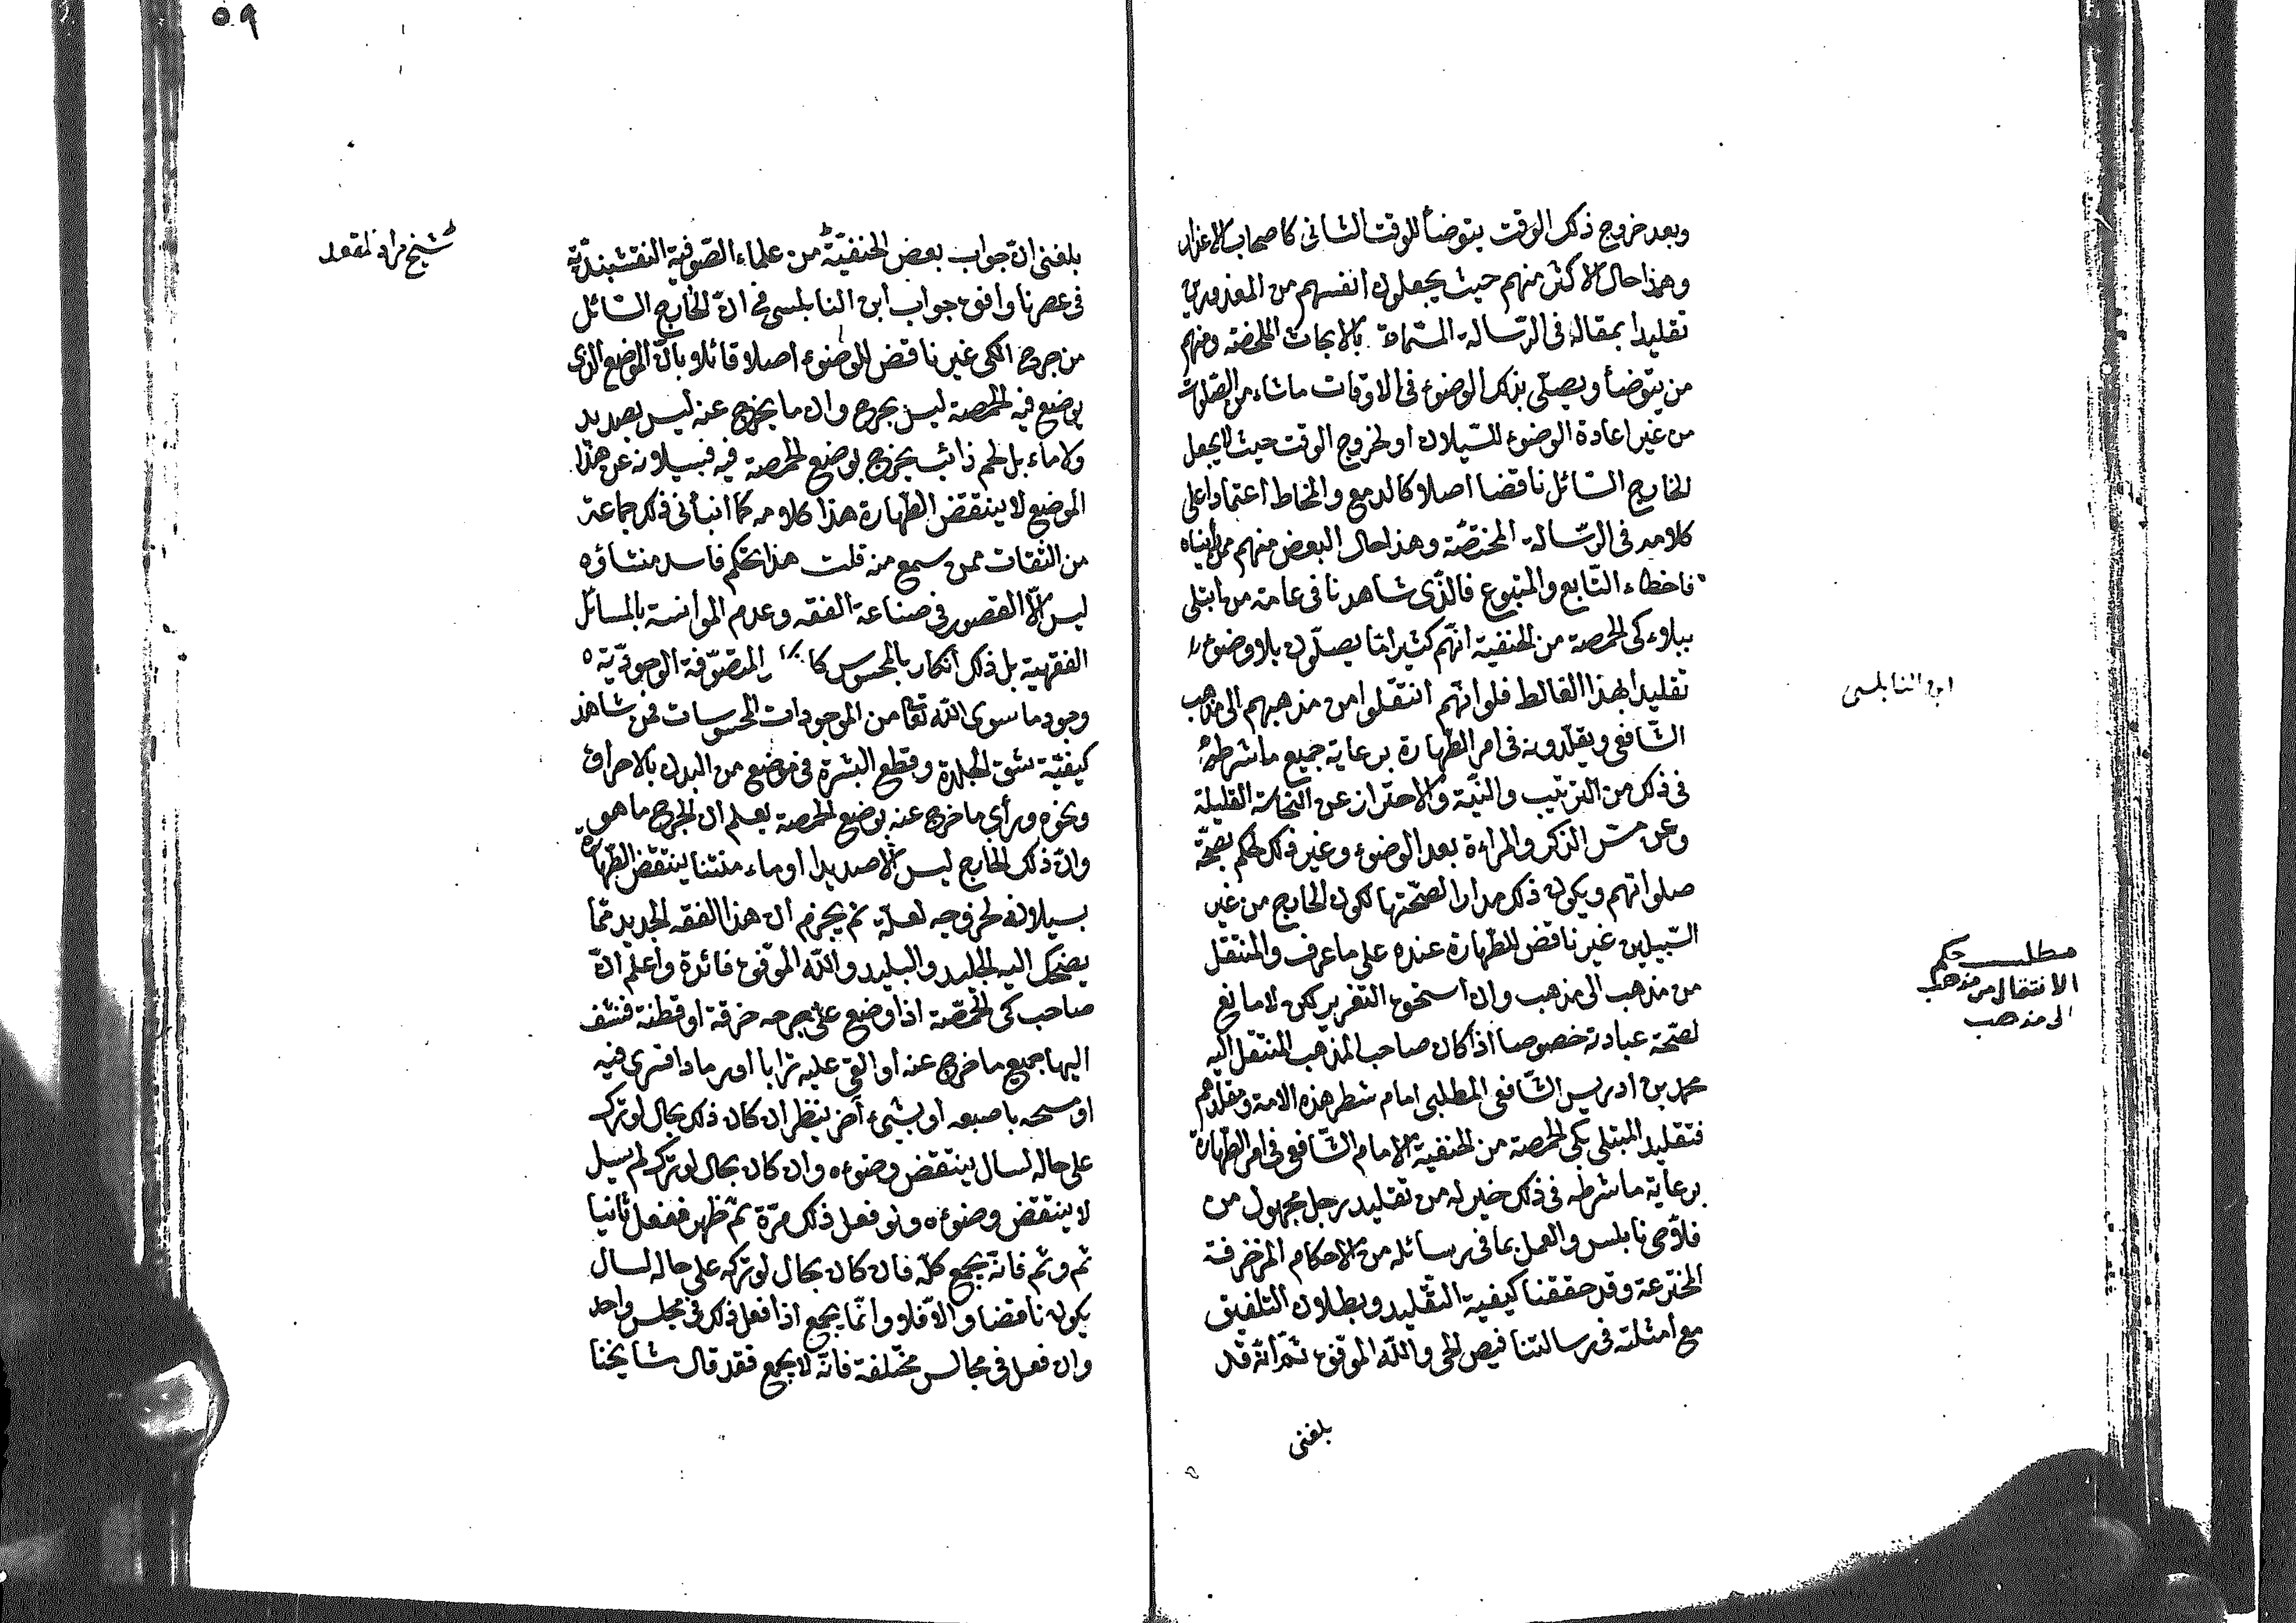 وبعد خروج ذلك الوقت يتوضأ للوقت الثانى كاصحاب الاعذار
وهذا حال الاكثر منهم حيث يجعلون انفسهم من المعذورين
تقليدا بمقاله فى الرّسالة المسمّاة بالابحاث الملخصة ومنهم
من يتوضأ ويصلّى بذلك الوضوء فى الاوقات ماشاء من الصّلوات
من غير اعادة الوضوء للسّيلان او لخروج الوقت حيث لا يجعل
الخارج السّائل ناقضا اصلا كالدمع والمخاط اعتمادا على
كلامه فى الرّسالة المختصّة وهذا حال البعض منهم ممن رأيناه
فاخطاء التّابع والمتبوع فالذّى شاهدنا فى عامة من ابتلى
ببلاء كى الحمصة من الحنفية انّهم كثيرا ما يصلّون بلا وضوء
تقليدا لهذا الغالط فلو انّهم انتقلوا من مذهبهم الى مذهب
الشّافعى ويقلّدونه فى امر الطّهارة برعاية جميع ما شرطه
فى ذلك من الترتيب والنيّة والاحتراز عن النّجاسة القليلة
وعن مسّ الذكر والمراءة بعد الوضوء وغير ذلك لحكم بصحّة
صلواتهم ويكون ذلك مدارا لصحّتها لكون الخارج من غير
السّبيلين غير ناقض للطّهارة عنده على ما عرف والمنتقل
من مذهب الى مذهب وان استحق التعزير لكن لا مانع
لصحّة عبادته خصوصا اذا كان صاحب المذهب المنتقل اليه
محمد بن ادريس الشّافعى المطلبى امام شطر هذه الامة ومقلدهم
فتقليد المبتلى بكى الحمصة من الحنفية الامام الشّافعى فى امر الطّهارة
برعاية ما شرطه فى ذلك خير له من تقليد رجل مجهول من
فلاّحى نابلس والعمل بما فى رسائله من الاحكام المزخرفة
المخترعة وقد حققنا كيفية التقليد وبطلان التلفيق
مع امثلته فى رسالتنا فيض الحى والله الموفق ثمّ انّه قد
بلغنى
ابن النابلسى
مطلب حكم
الانتقال من مذهب
الى مذهب
٥٩
بلغنى انّ جواب بعض الحنفيّة من علماء الصّوفية النقشبنديّة
فى عصرنا وافق جواب ابن النابلسى فى انّ الخارج السّائل
من جروح الكى غير ناقض للوضوء اصلا قائلا بانّ الموضع الذى
يوضع فيه الحمصة ليس بجرح وان ما يخرج عنه ليس بصديد
ولا ماء بل لحم ذائب يخرج بوضع الحمصة فيه فبسيلانه عن هذا
الموضع لا ينتقض الطّهارة هذا كلامه كما انبأنى ذلك جماعة
من الثقات ممن سمع منه قلت هذا الحكم فاسد منشاؤه
ليس الّا القصور فى صناعة الفقه وعدم الموانسة بالمسائل
الفقهية بل ذلك انكار بالمحسوس كانكار المتصوّفة الوجوديّة
وجود ما سوى الله تعا من الموجودات المحسوسات فمن شاهد
كيفيّة شق الجلدة وقطع البشرة فى موضع من البدن بالاحراق
ونحوه ورأى ما خرج عنه بوضع الحمصة يعلم ان الجرح ما هو
وانّ ذلك الخارج ليس الّا صديدا او ماء منتنا ينتقض الطّهارة
بسيلانه لخروجه لعلّة ثم يجزم ان هذا الفقه الجديد ممّا
يضحك اليه الجليد والبليد والله الموفق فائدة واعلم انّ
صاحب كى الحمّصة اذا وضع على جرحه خرقة او قطنة فنشف
اليها جميع ما خرج عنه او القى عليه ترابا او رمادا فسرى فيه
او مسحه باصبعه او بشىء آخر ينظر ان كان ذلك بحال لو تركه
على حاله لسال ينتقض وضوءه وان كان بحال لو تركه لم يسيل
لا ينتقض وضوءه ولو فعل ذلك مرّة ثمّ ظهر ففعل ثانيا
ثم وثم فانّه يجمع كلّه فان كان بحال لو تركه على حاله لسال
يكون ناقضا والّا فلا وانّما يجمع اذا فعل ذلك فى مجلس واحد
وان فعل فى مجالس مختلفة فانّه لا يجمع فقد قال مشايخنا
شيخ مراد المقعد